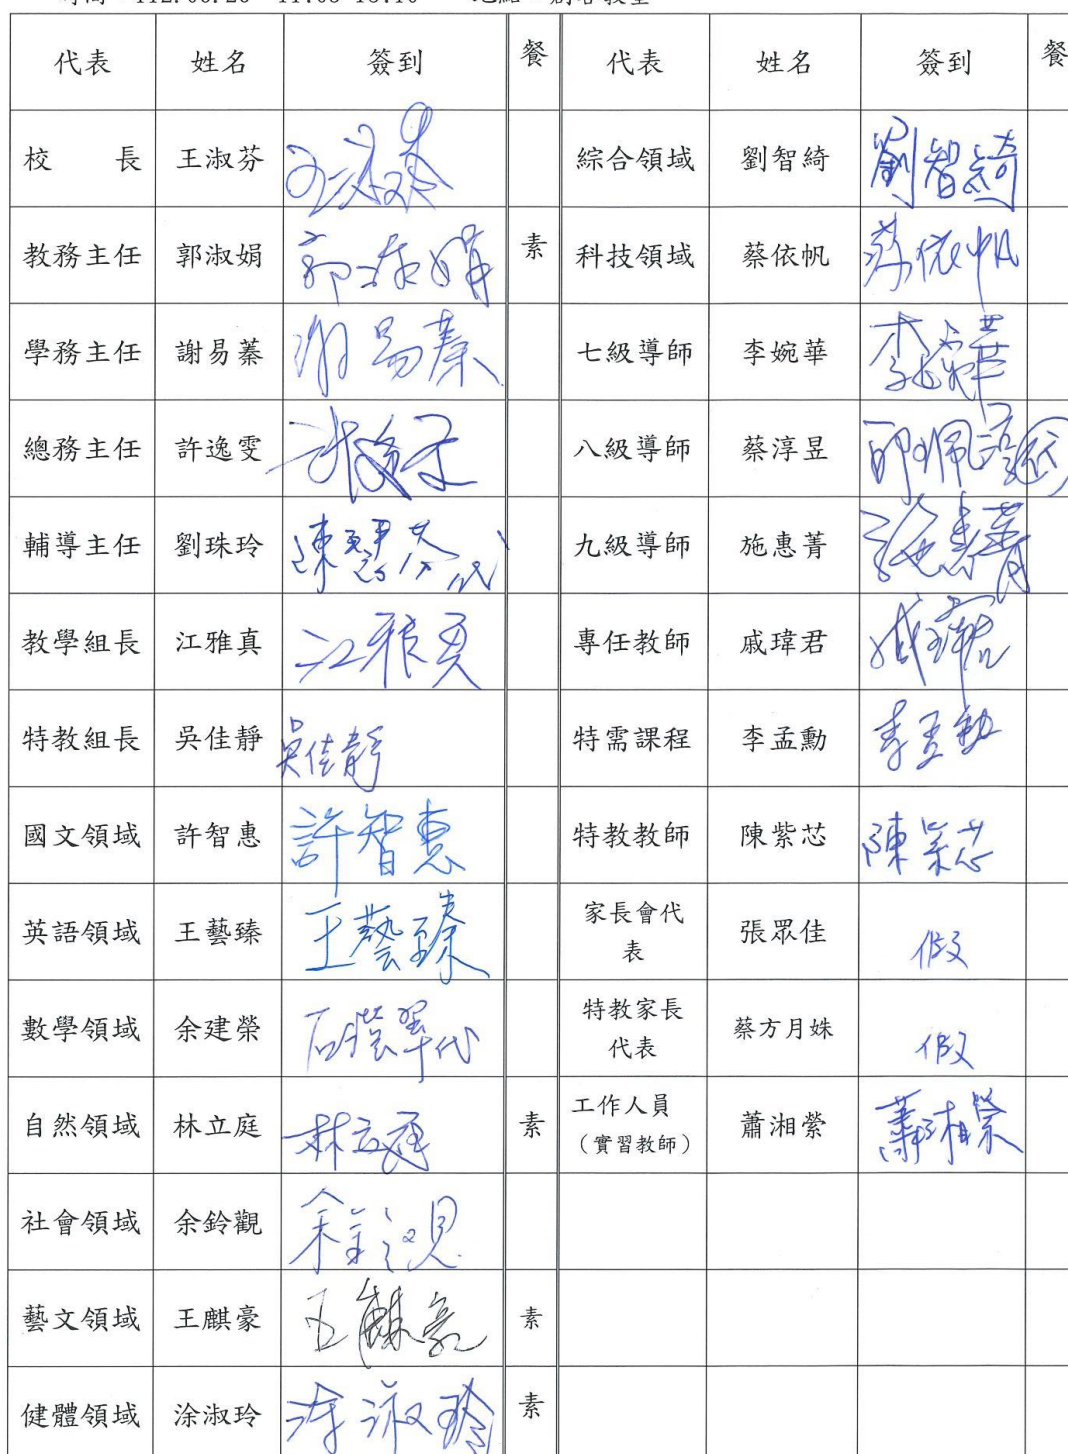 代表 姓名 簽到 餐 代表 姓名 簽到 餐
校 長 王淑芬 王淑芬 綜合領域 劉智綺 劉智綺
教務主任 郭淑娟 郭淑娟 素 科技領域 蔡依帆 蔡依帆
學務主任 謝易蓁 謝易蓁 七級導師 李婉華 李婉華
總務主任 許逸雯 許逸雯 八級導師 蔡淳昱
輔導主任 劉珠玲 九級導師 施惠菁 施惠菁
教學組長 江雅真 江雅真 專任教師 戚瑋君 戚瑋君
特教組長 吳佳靜 吳佳靜 特需課程 李孟勳 李孟勳
國文領域 許智惠 許智惠 特教教師 陳紫芯 陳紫芯
英語領域 王藝臻 王藝臻 家長會代
表 張眾佳 假
數學領域 余建榮 特教家長
代表 蔡方月姝 假
自然領域 林立庭 林立庭 素 工作人員
（實習教師） 蕭湘縈 蕭湘縈
社會領域 余鈴觀 余鈴觀
藝文領域 王麒豪 王麒豪 素
健體領域 涂淑玲 涂淑玲 素